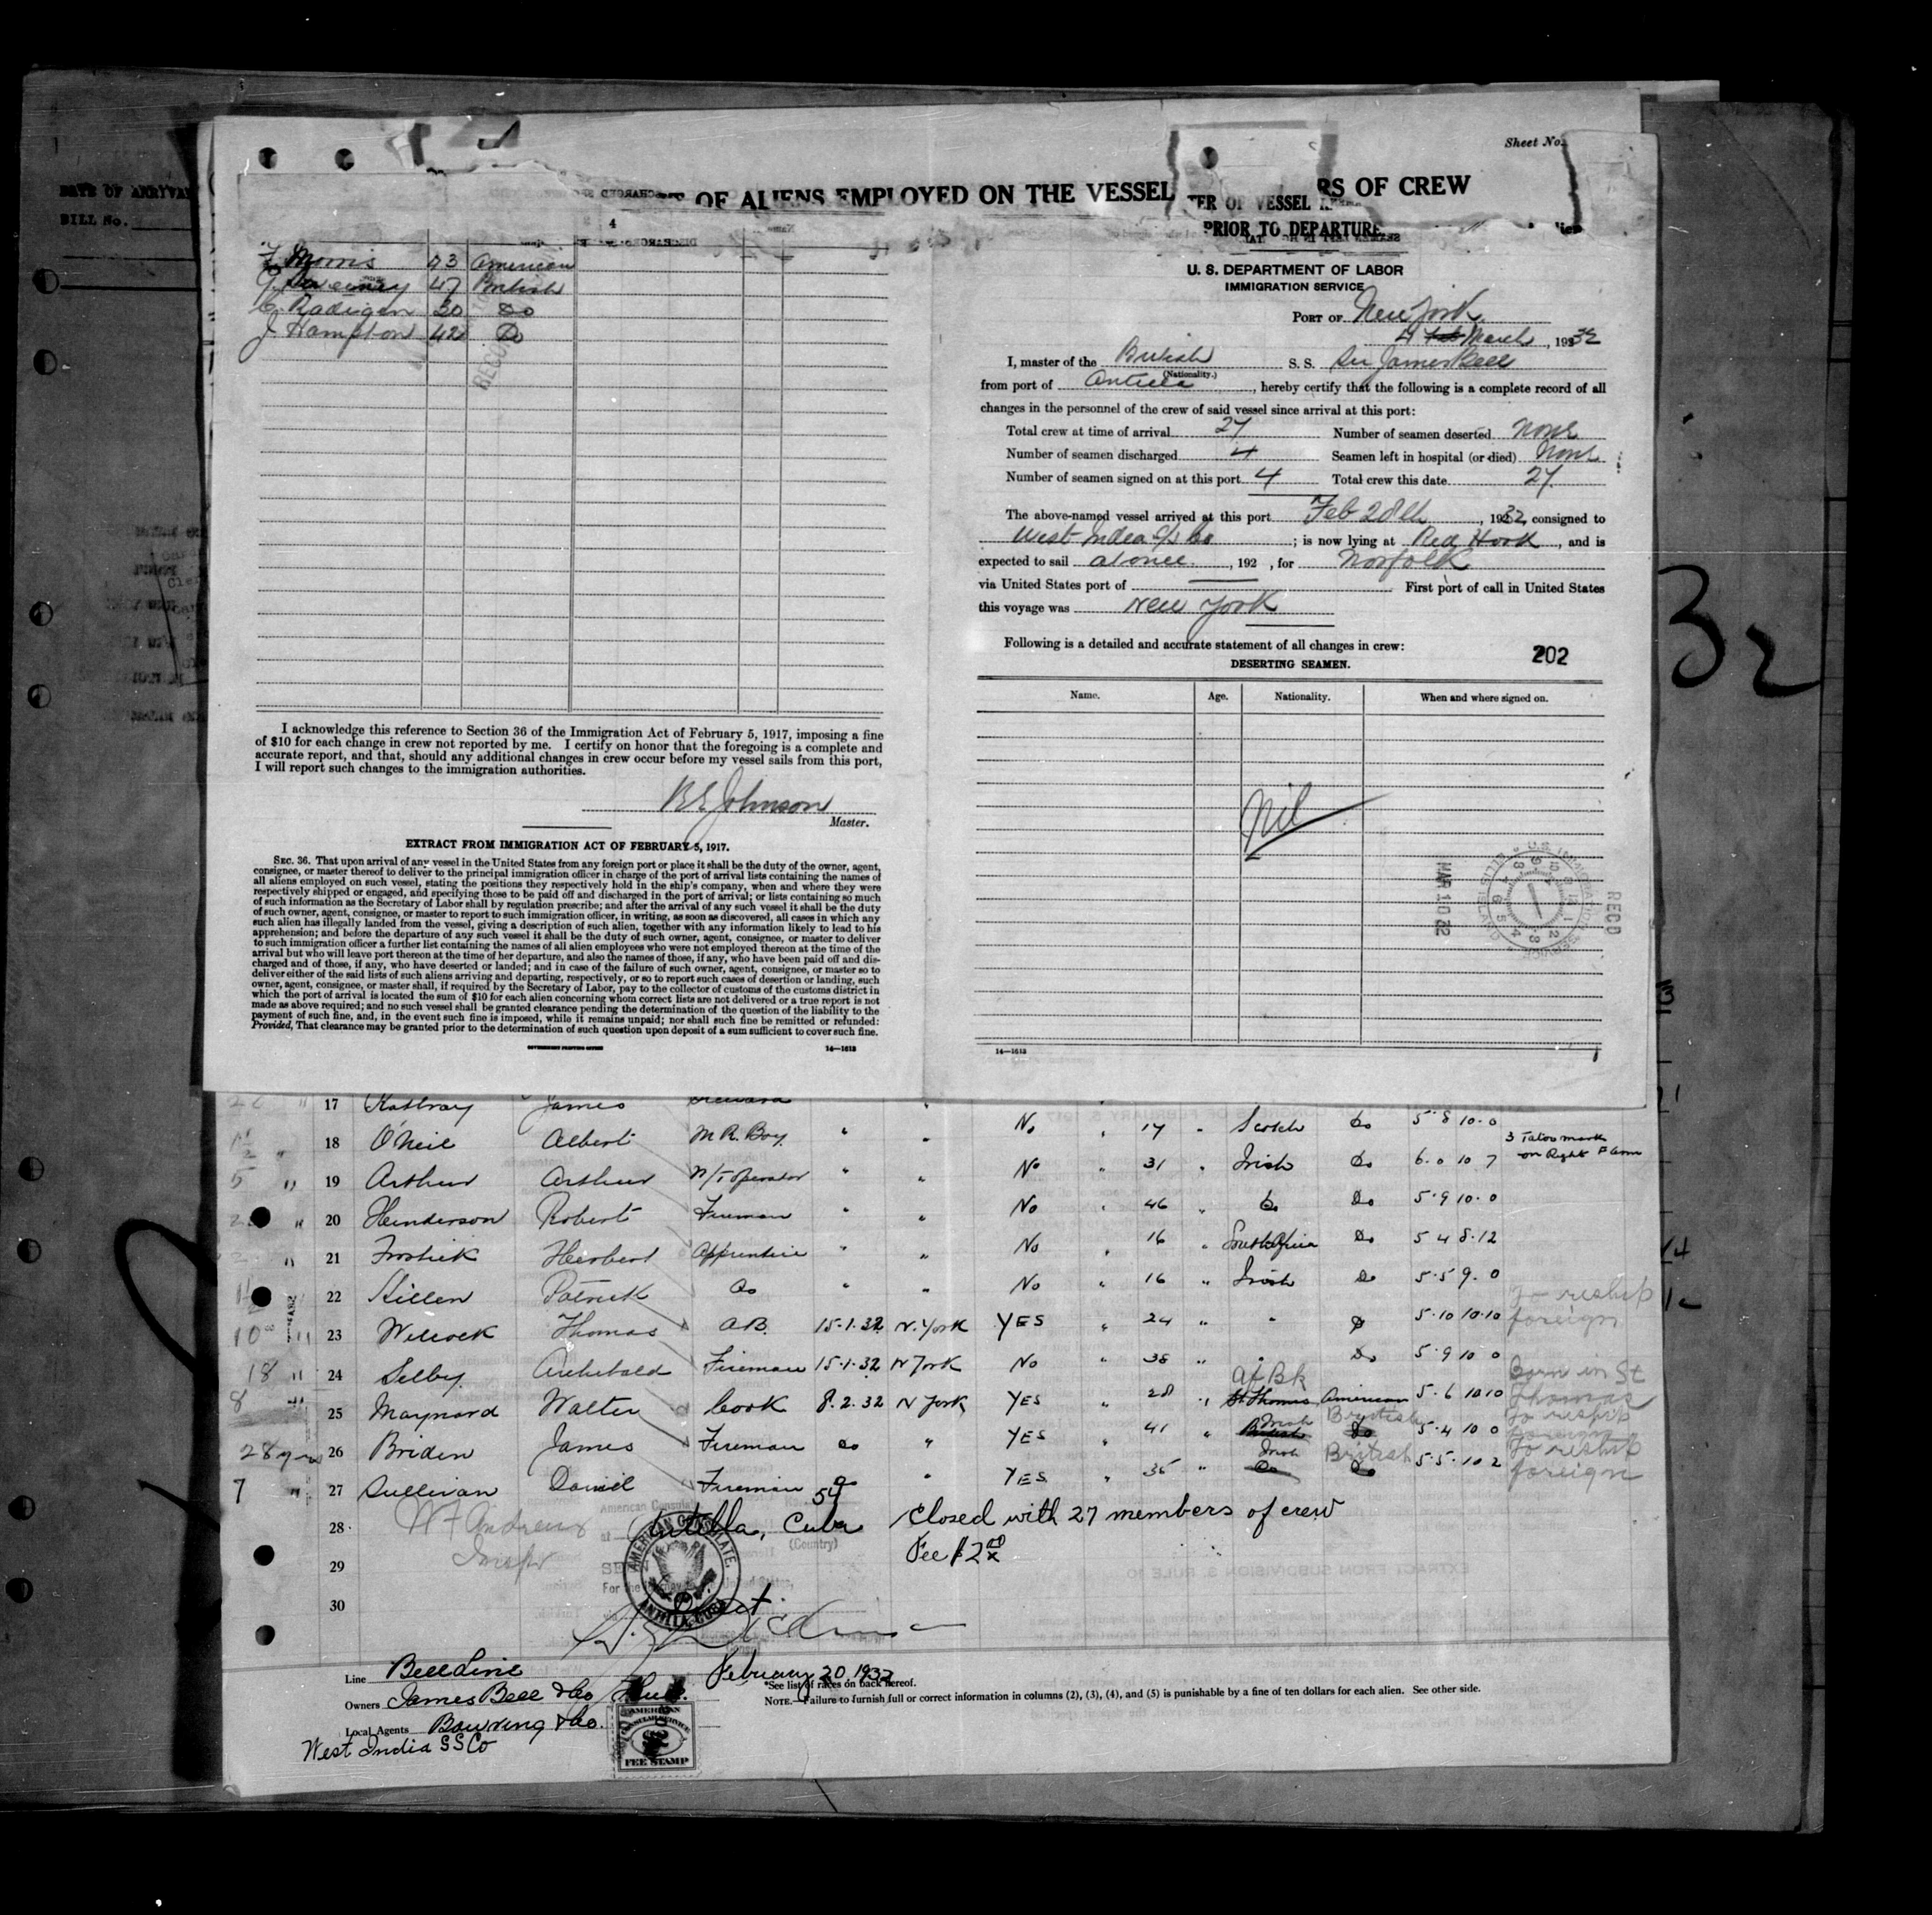 Sheet No.
DATE OF ARRIVAL
BILL No.
OF ALIENS EMPLOYED ON THE VESSEL
RS OF CREW
TER OF VESSEL
PRIOR TO DEPARTURE
4
Morris 43 American
47 British
Radigan 30 Do
J Hampton 42 Do
I acknowledge this reference to Section 36 of the Immigration Act of February 5, 1917, imposing a fine
of $10 for each change in crew not reported by me. I certify on honor that the foregoing is a complete and
accurate report, and that, should any additional changes in crew occur before my vessel sails from this port,
I will report such changes to the immigration authorities.
Johnson
Master.
EXTRACT FROM IMMIGRATION ACT OF FEBRUARY 5, 1917.
SEC. 36. That upon arrival of any vessel in the United States from any foreign port or place it shall be the duty of the owner, agent,
consignee, or master thereof to deliver to the principal immigration officer in charge of the port of arrival lists containing the names of
all aliens employed on such vessel, stating the positions they respectively hold in the ship's company, when and where they were
respectively shipped or engaged, and specifying those to be paid off and discharged in the port of arrival; or lists containing so much
of such information as the Secretary of Labor shall by regulation prescribe; and after the arrival of any such vessel it shall be the duty
of such owner, agent, consignee, or master to report to such immigration officer, in writing, as soon as discovered, all cases in which any
such alien has illegally landed from the vessel, giving a description of such alien, together with any information likely to lead to his
apprehension; and before the departure of any such vessel it shall be the duty of such owner, agent, consignee, or master to deliver
to such immigration officer a further list containing the names of all alien employees who were not employed thereon at the time of the
arrival but who will leave port thereon at the time of her departure, and also the names of those, if any, who have been paid off and dis-
charged and of those, if any, who have deserted or landed; and in case of the failure of such owner, agent, consignee, or master so to
deliver either of the said lists of such aliens arriving and departing, respectively, or so to report such cases of desertion or landing, such
owner, agent, consignee, or master shall, if required by the Secretary of Labor, pay to the collector of customs of the customs district in
which the port of arrival is located the sum of $10 for each alien concerning whom correct lists are not delivered or a true report is not
made as above required; and no such vessel shall be granted clearance pending the determination of the question of the liability to the
payment of such fine, and, in the event such fine is imposed, while it remains unpaid; nor shall such fine be remitted or refunded:
Provided, That clearance may be granted prior to the determination of such question upon deposit of a sum sufficient to cover such fine.
GOVERNMENT PRINTING OFFICE 14—1613
U. S. DEPARTMENT OF LABOR
IMMIGRATION SERVICE
PORT OF New York
March, 1932
I, master of the British S. S. Sir James Bell
(Nationality.)
from port of Antilla, hereby certify that the following is a complete record of all
changes in the personnel of the crew of said vessel since arrival at this port:
Total crew at time of arrival 27 Number of seamen deserted None
Number of seamen discharged 4 Seamen left in hospital (or died) None
Number of seamen signed on at this port 4 Total crew this date 27
The above-named vessel arrived at this port Feb 28th, 1932, consigned to
West India S/S Co; is now lying at Red Hook, and is
expected to sail at once, 192 , for Norfolk
via United States port of First port of call in United States
this voyage was New York
Following is a detailed and accurate statement of all changes in crew:
202
DESERTING SEAMEN.
Name. Age. Nationality. When and where signed on.
Nil
RECD
MAR 10 32
14—1613
32
17 James
18 O'Neil Albert M.R. Boy. " " No " 17 " Scotch Do 5·8 10·0
3 Tatoo mark
on Right F arm
5 " 19 Arthur Arthur W/T Operator " " No " 31 " Irish Do 6·0 10 7
20 Henderson Robert Fireman " " No " 46 " Do Do 5·9 10·0
21 Herbert Apprentice " " No " 16 " South Africa Do 5 4 8·12
22 Killen Patrick Do " " No " 16 " Irish Do 5·5 9·0
To reship
foreign
10 " 23 Welcock Thomas A.B. 15·1·32 N. York YES " 24 " " Do 5·10 10·10
18 " 24 Selby Archibald Fireman 15·1·32 N York No " 38 " " Do 5·9 10 0
8 25 Maynard Walter Cook 8.2.32 N York YES " 28 " Af Bk St Thomas American 5·6 10 10
Born in St
Thomas
28 yrs 26 Briden James Fireman Do " YES " 41 " British Irish Do British 5·4 10 0
To reship
foreign
7 " 27 Sullivan Daniel Fireman " YES " 35 " Do Irish Do British 5·5· 10 2
To reship
foreign
28 W F Andrews
Antilla, Cuba
(Country)
Closed with 27 members of crew
29 Inspr
Fee $2
American Consulate
AMERICAN CONSULATE
ANTILLA, CUBA
30
Line Bell Line
February 20, 1932
*See list of races on back hereof.
Owners James Bell & Co Hull.
NOTE.—Failure to furnish full or correct information in columns (2), (3), (4), and (5) is punishable by a fine of ten dollars for each alien. See other side.
Local Agents Bowring & Co.
West India SS Co
AMERICAN
CONSULAR SERVICE
FEE STAMP